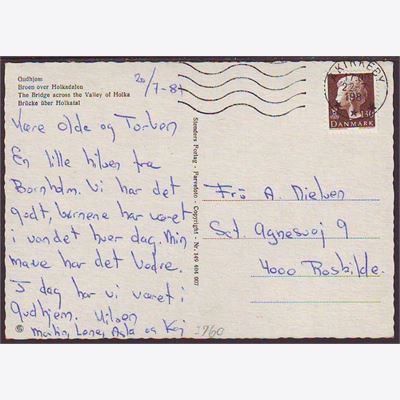 Gudhjem
Broen over Holkadalen
The Bridge across the Valley of Holka
Brücke über Holkatal
20/7-81
Kære olde og Torben
En lille hilsen fra
Bornholm. Vi har det
godt, børnene har været
i vandet hver dag. Min
mave har det bedre.
I dag har vi været i
Gudhjem. Hilsen
Martin, Lone, Asla og Kaj
Stenders Forlag - Farvefoto - Copyright - Nr. 249 404 007
KIRKEBY
130
DANMARK
Frü A. Nielsen
Sct. Agnesvej 9
4000 Roskilde.
1960